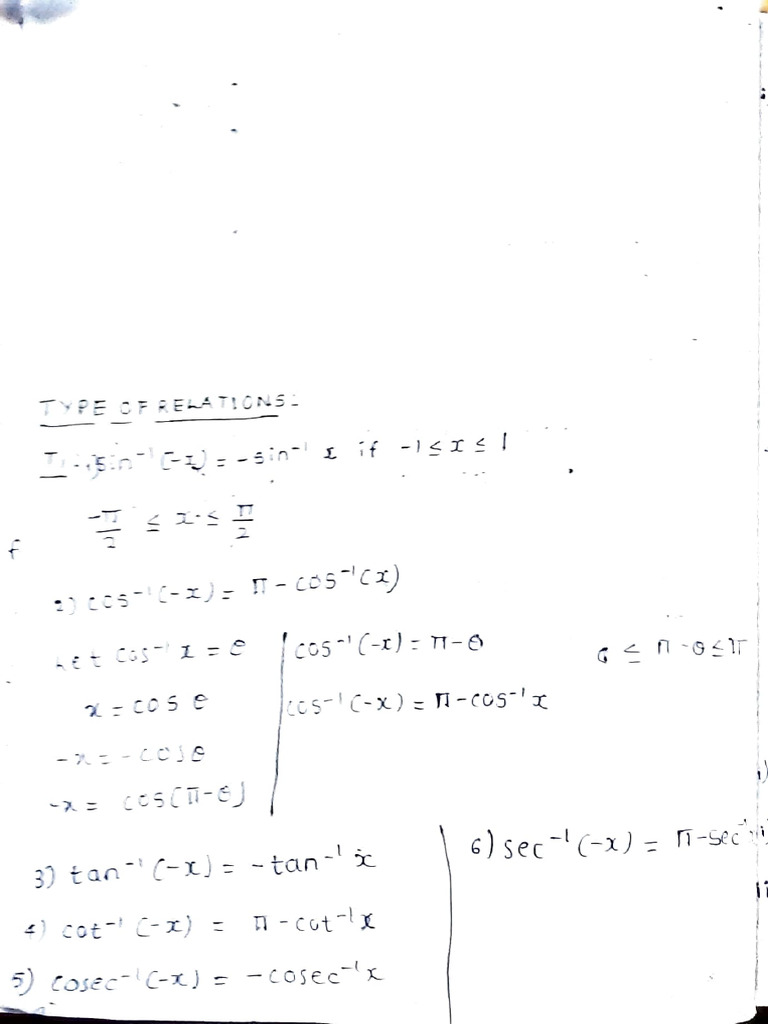 TYPE OF RELATIONS:
sin⁻¹(-x) = -sin⁻¹ x if -1 ≤ x ≤ 1
-π/2 ≤ x ≤ π/2
f
2) cos⁻¹(-x) = π - cos⁻¹(x)
Let cos⁻¹ x = θ
x = cos θ
-x = -cosθ
-x = cos(π-θ)
cos⁻¹(-x) = π-θ
cos⁻¹(-x) = π-cos⁻¹x
≤ π-θ ≤ π
3) tan⁻¹(-x) = -tan⁻¹ x
4) cot⁻¹(-x) = π - cot⁻¹x
5) cosec⁻¹(-x) = -cosec⁻¹x
6) sec⁻¹(-x) = π-sec⁻¹